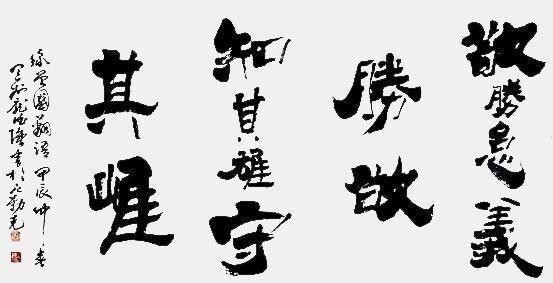 敬勝怠義
勝欲
知其雄守
其雌
錄曾國藩語 甲辰仲春
書於